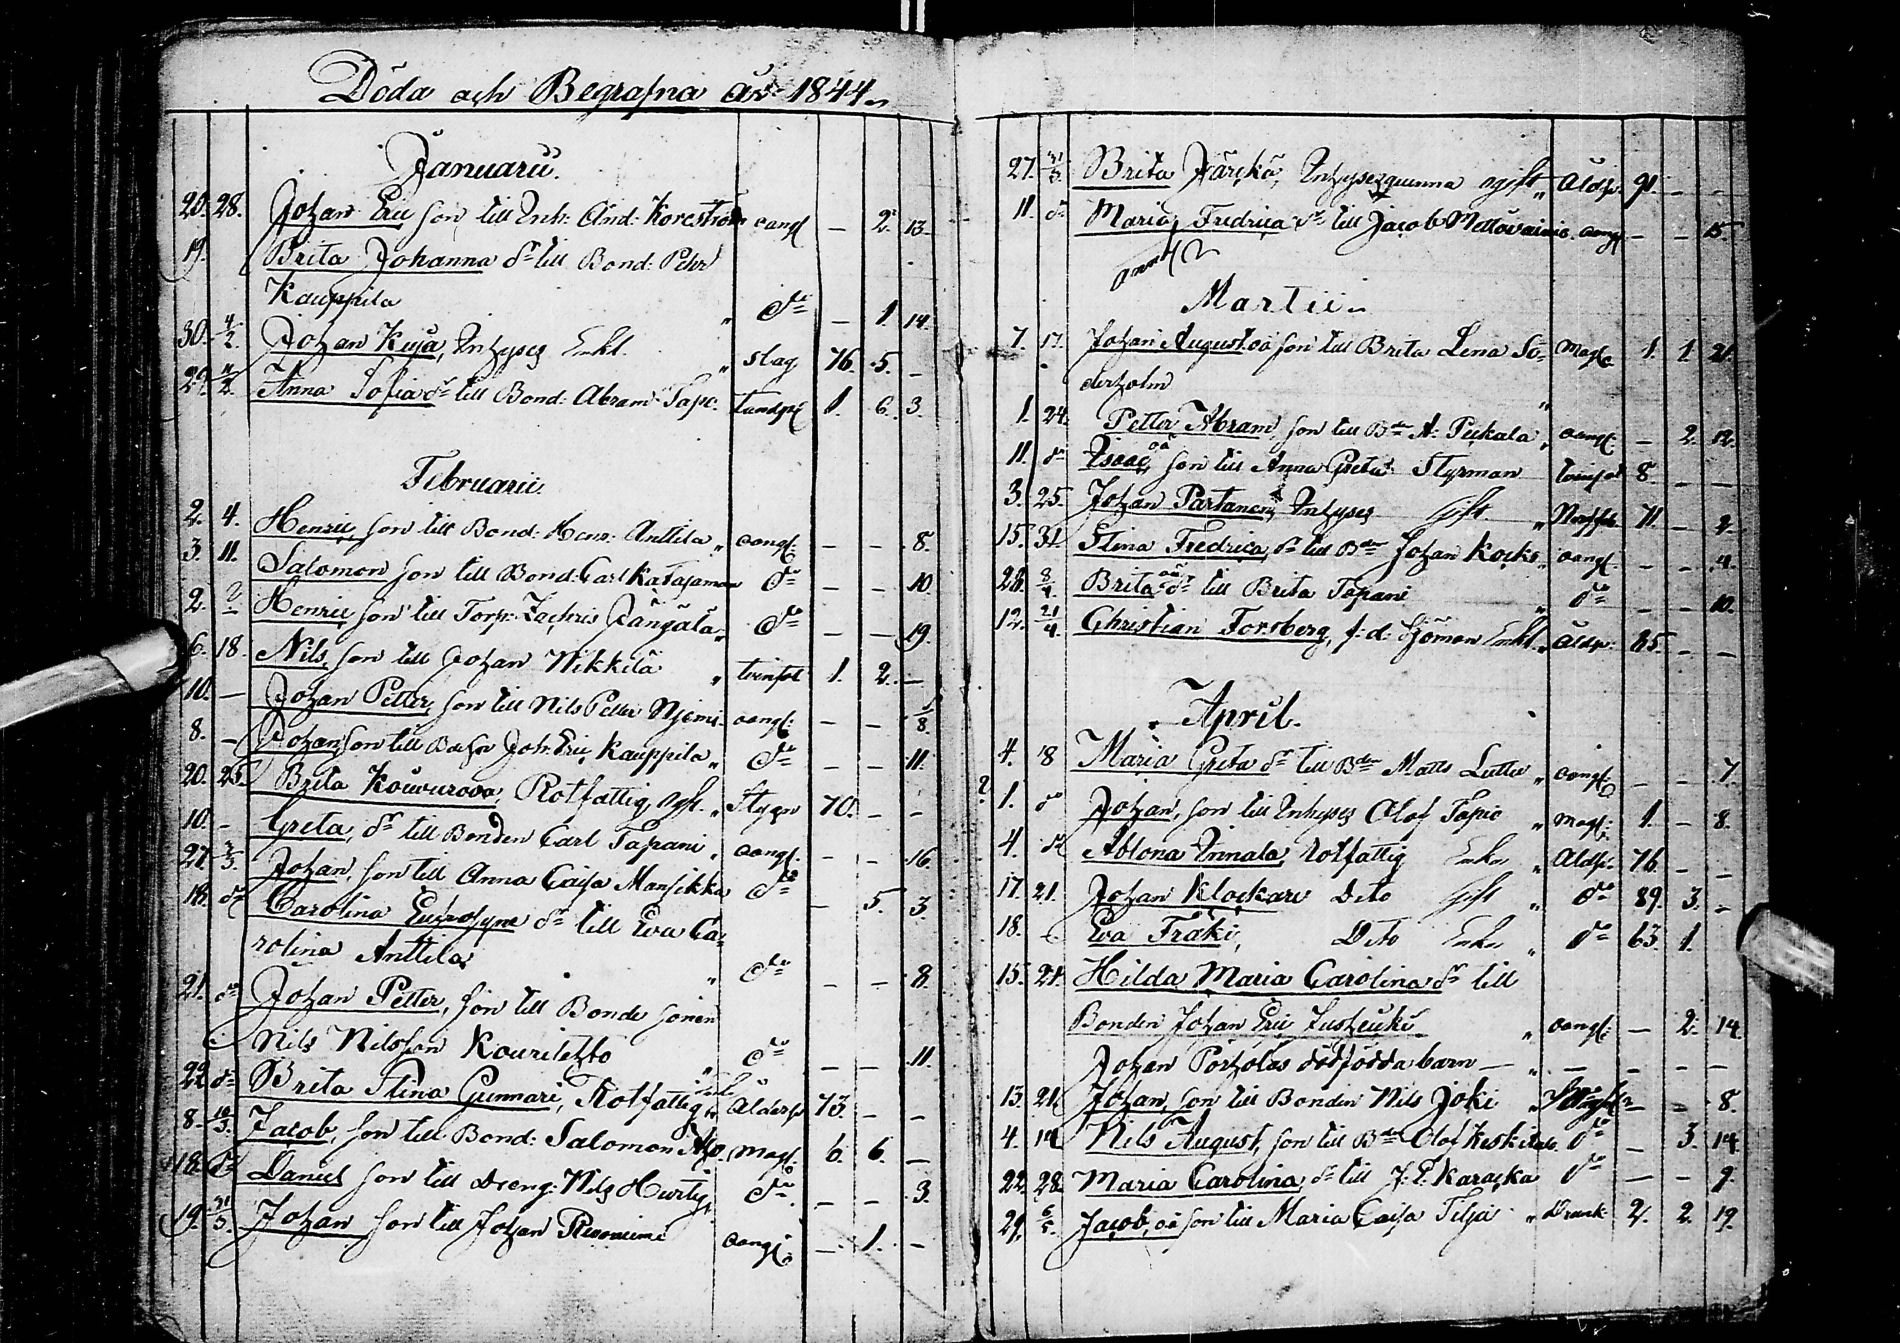 Döda och Begrafna år 1844
Januarii
20. 28. Johan Eric son till Inh: And: Koreström oangf — 2. 13.
19. Brita Johanna dr till Bond: Pehr
Kauppila " do — 1. 14.
30. 4/2 Johan Kuja, Inhyses Enkl. " slag 76. 5. —
29. 11/2 Anna Sofia dr till Bond: Abram Tapi: 1. 6. 3.
Februarii
2. 4. Henric, son till Bond: Henr: Anttila " oangf: — — 8.
3. 11. Salomon son till Bond: Carl Katajamaa do — — 10.
2. Henric son till Torp: Zachris Jängälä " do — — 19.
6. 18. Nils, son till Johan Nikkilä " tvinsot 1. 2. —
10. — Johan Petter, son till Nils Petter Njemi oangf: — — 8.
8. — Johan son till Joh: Eric Kauppila " do — — 11.
20. 25. Brita Kouvurova, Rotfattig, ogft. " Stygn 70. — —
10. — Greta, dr till Bonden Carl Tapani " oangf: — — 16.
27. 3/3 Johan, son till Anna Caisa Mansikka do — 5. 3.
18. do Carolina Eufrosyne dr till Eva Ca-
rolina Anttila " do — — 8.
21. do Johan Petter, son till Bonde sonen
Nils Nilsson Kourilehto " do — — 11.
22. do Brita Stina Gunnari, Rotfattig Ålders 73. — —
8. 10/3 Jacob, son till Bond: Salomon Alp. Magf. 6. 6. —
18. do Daniel son till Dreng: Nils Hurtig. do — — 3.
19. 31/3 Johan son till Johan oangf: — 1. —
27. 31/3 Brita Järckä, Inhysesqvinna ogift " Åldr: 91. — —
11. do Maria Fredrica dr till Jacob Mettovainio. oangf — — 15.
Martii
7. 17. Johan August oä son till Brita Lena Sö- Magf. 1. 1. 21.
derholm "
1. 24. Petter Abram, son till Bdn A: Pickala " oangf: — 2. 12.
11. do Isaac, oä son till Anna Greta Styrman tvinsot 8. — —
3. 25. Johan Partanen, Inhyses gift. " 71. — 2.
15. 31. Stina Fredrica, dr till Bdn Johan Kocko " oangf — — 4.
28. 8/4 Brita oä dr till Brita Tapani " do — — 10.
12. 21/4 Christian Forsberg, f: d: Sjöman Enkl. " Åldr: 85. — —
April.
4. 8 Maria Greta dr till Bdn Matts Luttu " oangf: — — 7.
1. do Johan, son till Inhyses Olof Tapio " Magf: 1. — 8.
4. do Ablona Innala, Rotfattig Enka " Åldr: 76. — —
17. 21. Johan Klockare Dito gift " do 89. 3. —
18. Eva Fräki, Dito Enka " do 63. 1. —
15. 21. Hilda Maria Carolina dr till
Bonden Johan Eric " oangf: — 2. 14.
Johan Porholas dödfödda barn — " — — — —
13. 21. Johan, son till Bonden Nils Joki " — — 8.
4. 14. Nils August, son till Bdn Olof Keskitalo. do — 3. 14.
22. 28. Maria Carolina, dr till J: P. Karacka do — — 9.
29. 6/5. Jacob, oä son till Maria Caisa Tilja " Drunk. 2. 2. 19.